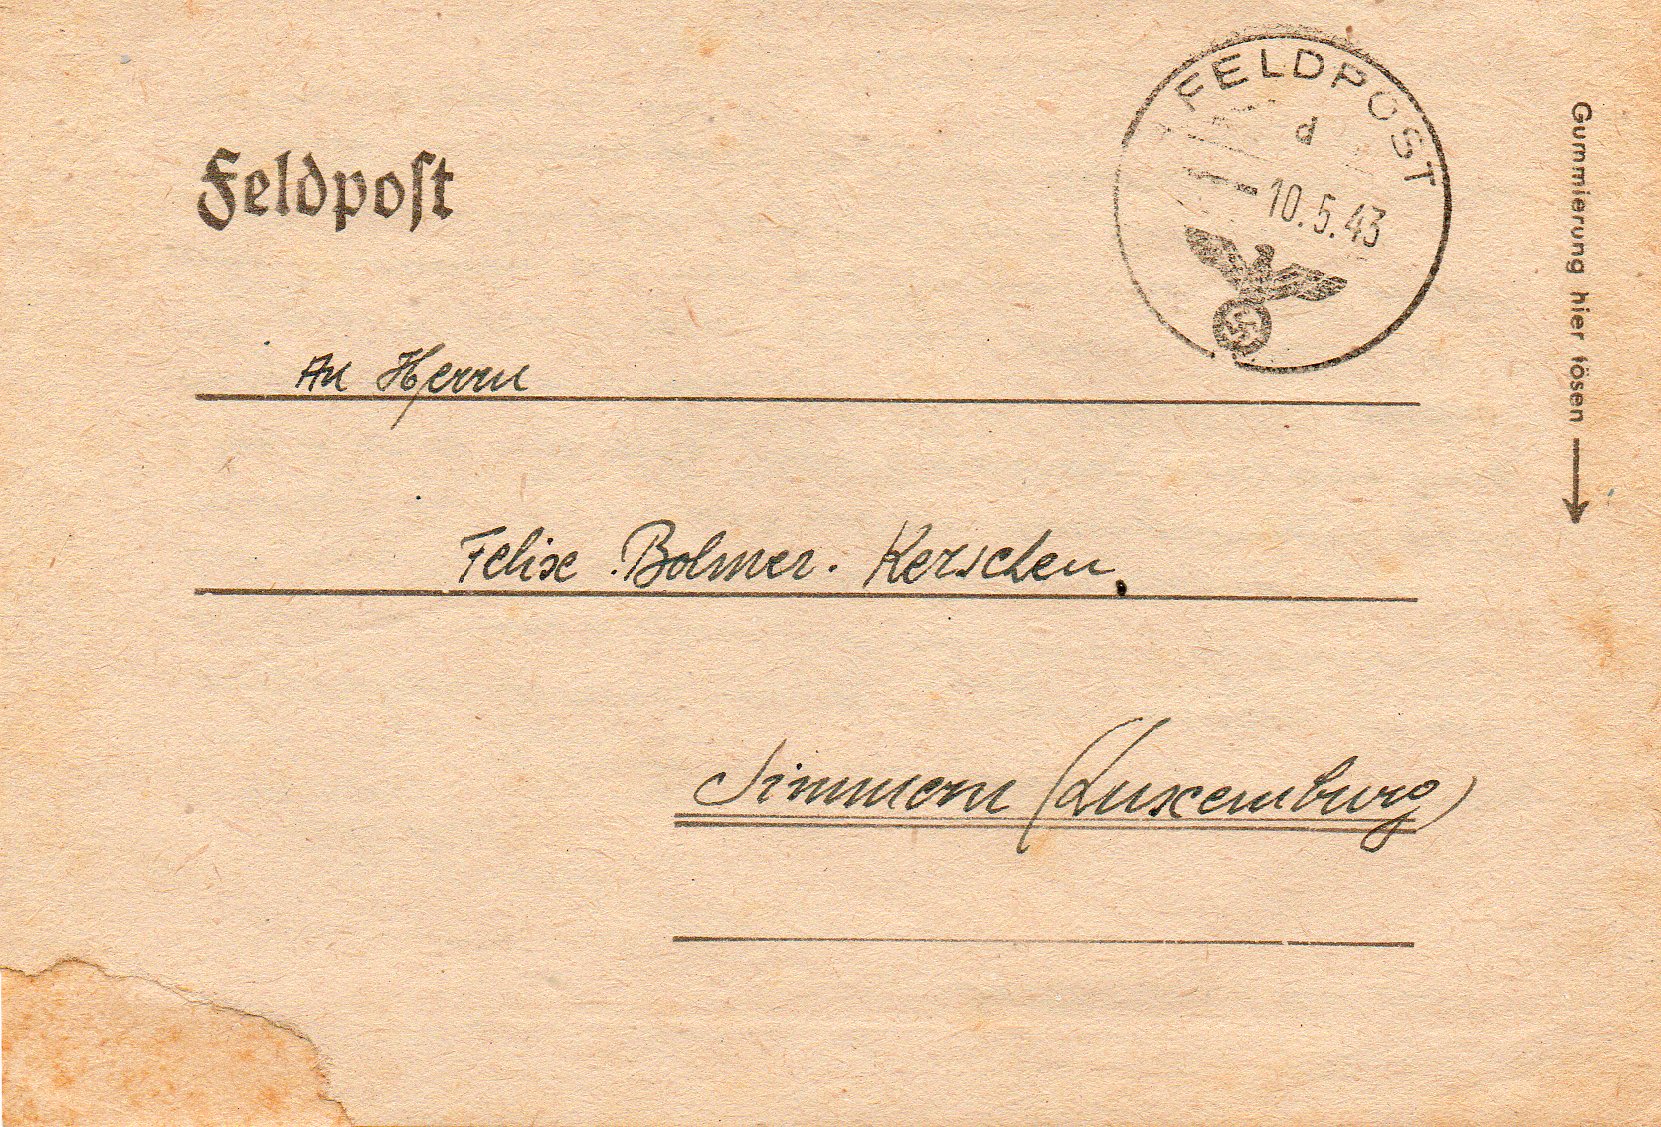 Feldpost
FELDPOST
d
-10.5.43
Gummierung hier lösen
An Herrn
Felix Bolmer. Kerschen.
Simmern (Luxemburg)